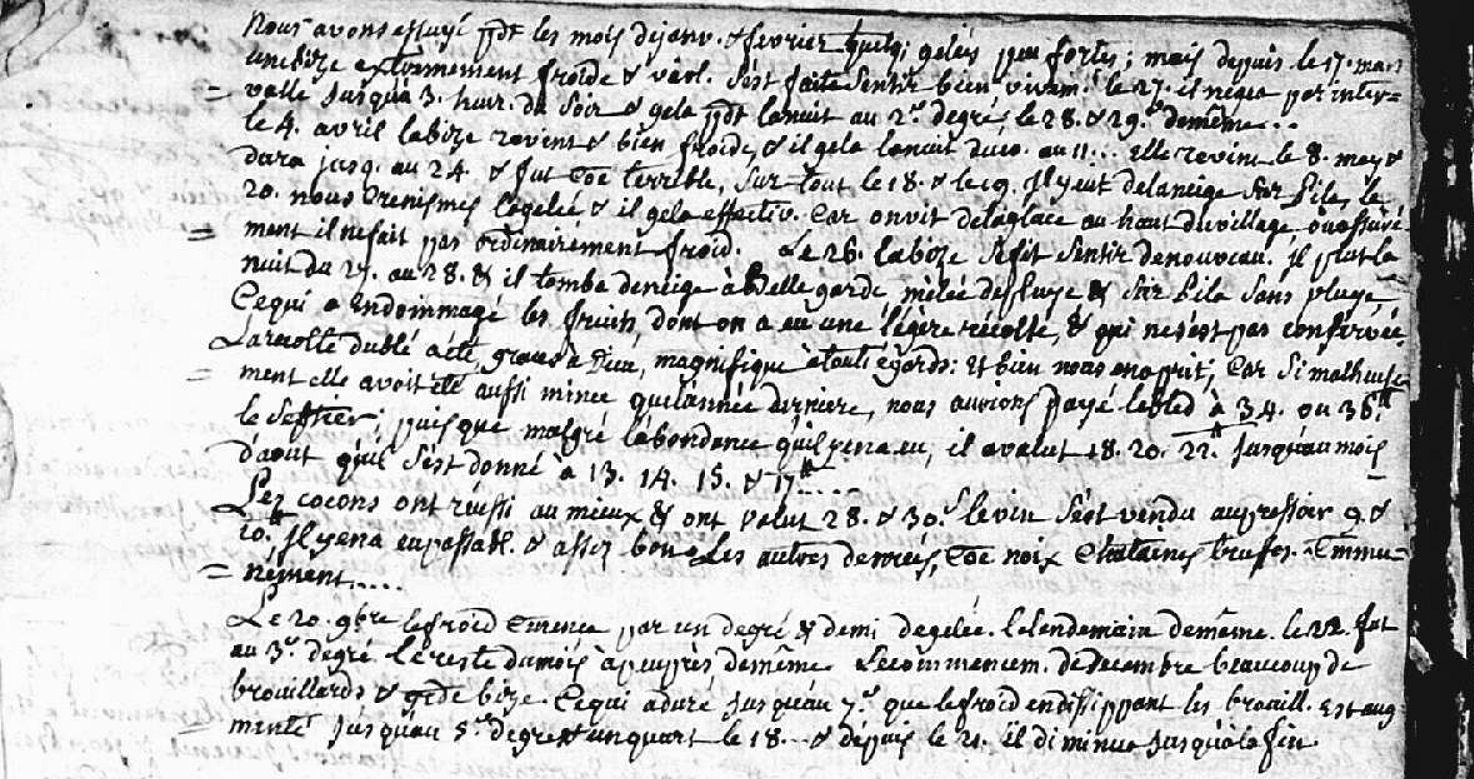 Nous avons essuyé pdt les mois de janv. & fevrier quelq; gelées peu fortes; mais depuis le 17. mars
une bize extremement froide & viol. s'est faite sentir bien vivem.t le 27. il negea par inter=
= valle jusqu'à 3. heur. du soir & gela pdt la nuit au 2.e degré, le 28. & 29. de même...
le 4. avril la bize revint & bien froide, & il gela la nuit du 10. au 11... Elle revint le 8. may &
dura jusq. au 24. & fut terrible, sur=tout le 18. & le 19. Il y eut de la neige sur Pila, le
20. nous crenismes la gelée, & il gela effectiv. car on vit de la glace au haut du village, où assuré=
= ment il ne fait pas ordinairement froid. Le 26. la bize se fit sentir de nouveau. il plut la
nuit du 27. au 28. & il tomba de neige à Bellegarde mêlée de pluye & sur Pila sans pluye,
Ce qui a endommagé les fruits, dont on a eu une légère récolte, & qui ne s'est pas conservée.
La recolte du blé a été, graces à Dieu, magnifique à touts égards: Et bien nous en a prit, car si malheuse=
= ment elle avoit été aussi mince que l'année derniere, nous aurions payé le bled à 34. ou 36.#
le septier, puisque malgré l'abondance qu'il y en a eu, il a valut 18. 20. 22.# jusqu'au mois
d'aout qu'il s'est donné à 13. 14. 15. & 17#....
Les cocons ont réussi au mieux & ont valut 28. & 30.s le vin s'est vendu au pressoir 9. &
10.# Il y en a eu passabl. & assez bon. Les autres denrées, noix chataines trufes. Commu=
= nément....
Le 20. 9bre le froid Cmença par un degré & demi de gelée. le lendemain de même. le 22. fut
au 3.e degré. le reste du mois à peu près de même. Le commencem. de Decembre beaucoup de
brouillards & gde bize. Ce qui a duré jusqu'au 7.e que le froid en dissippant les brouill. Est aug
menté jusqu'au 5.e degré & un quart le 18... & depuis le 21. il diminua jusqu'à la fin.